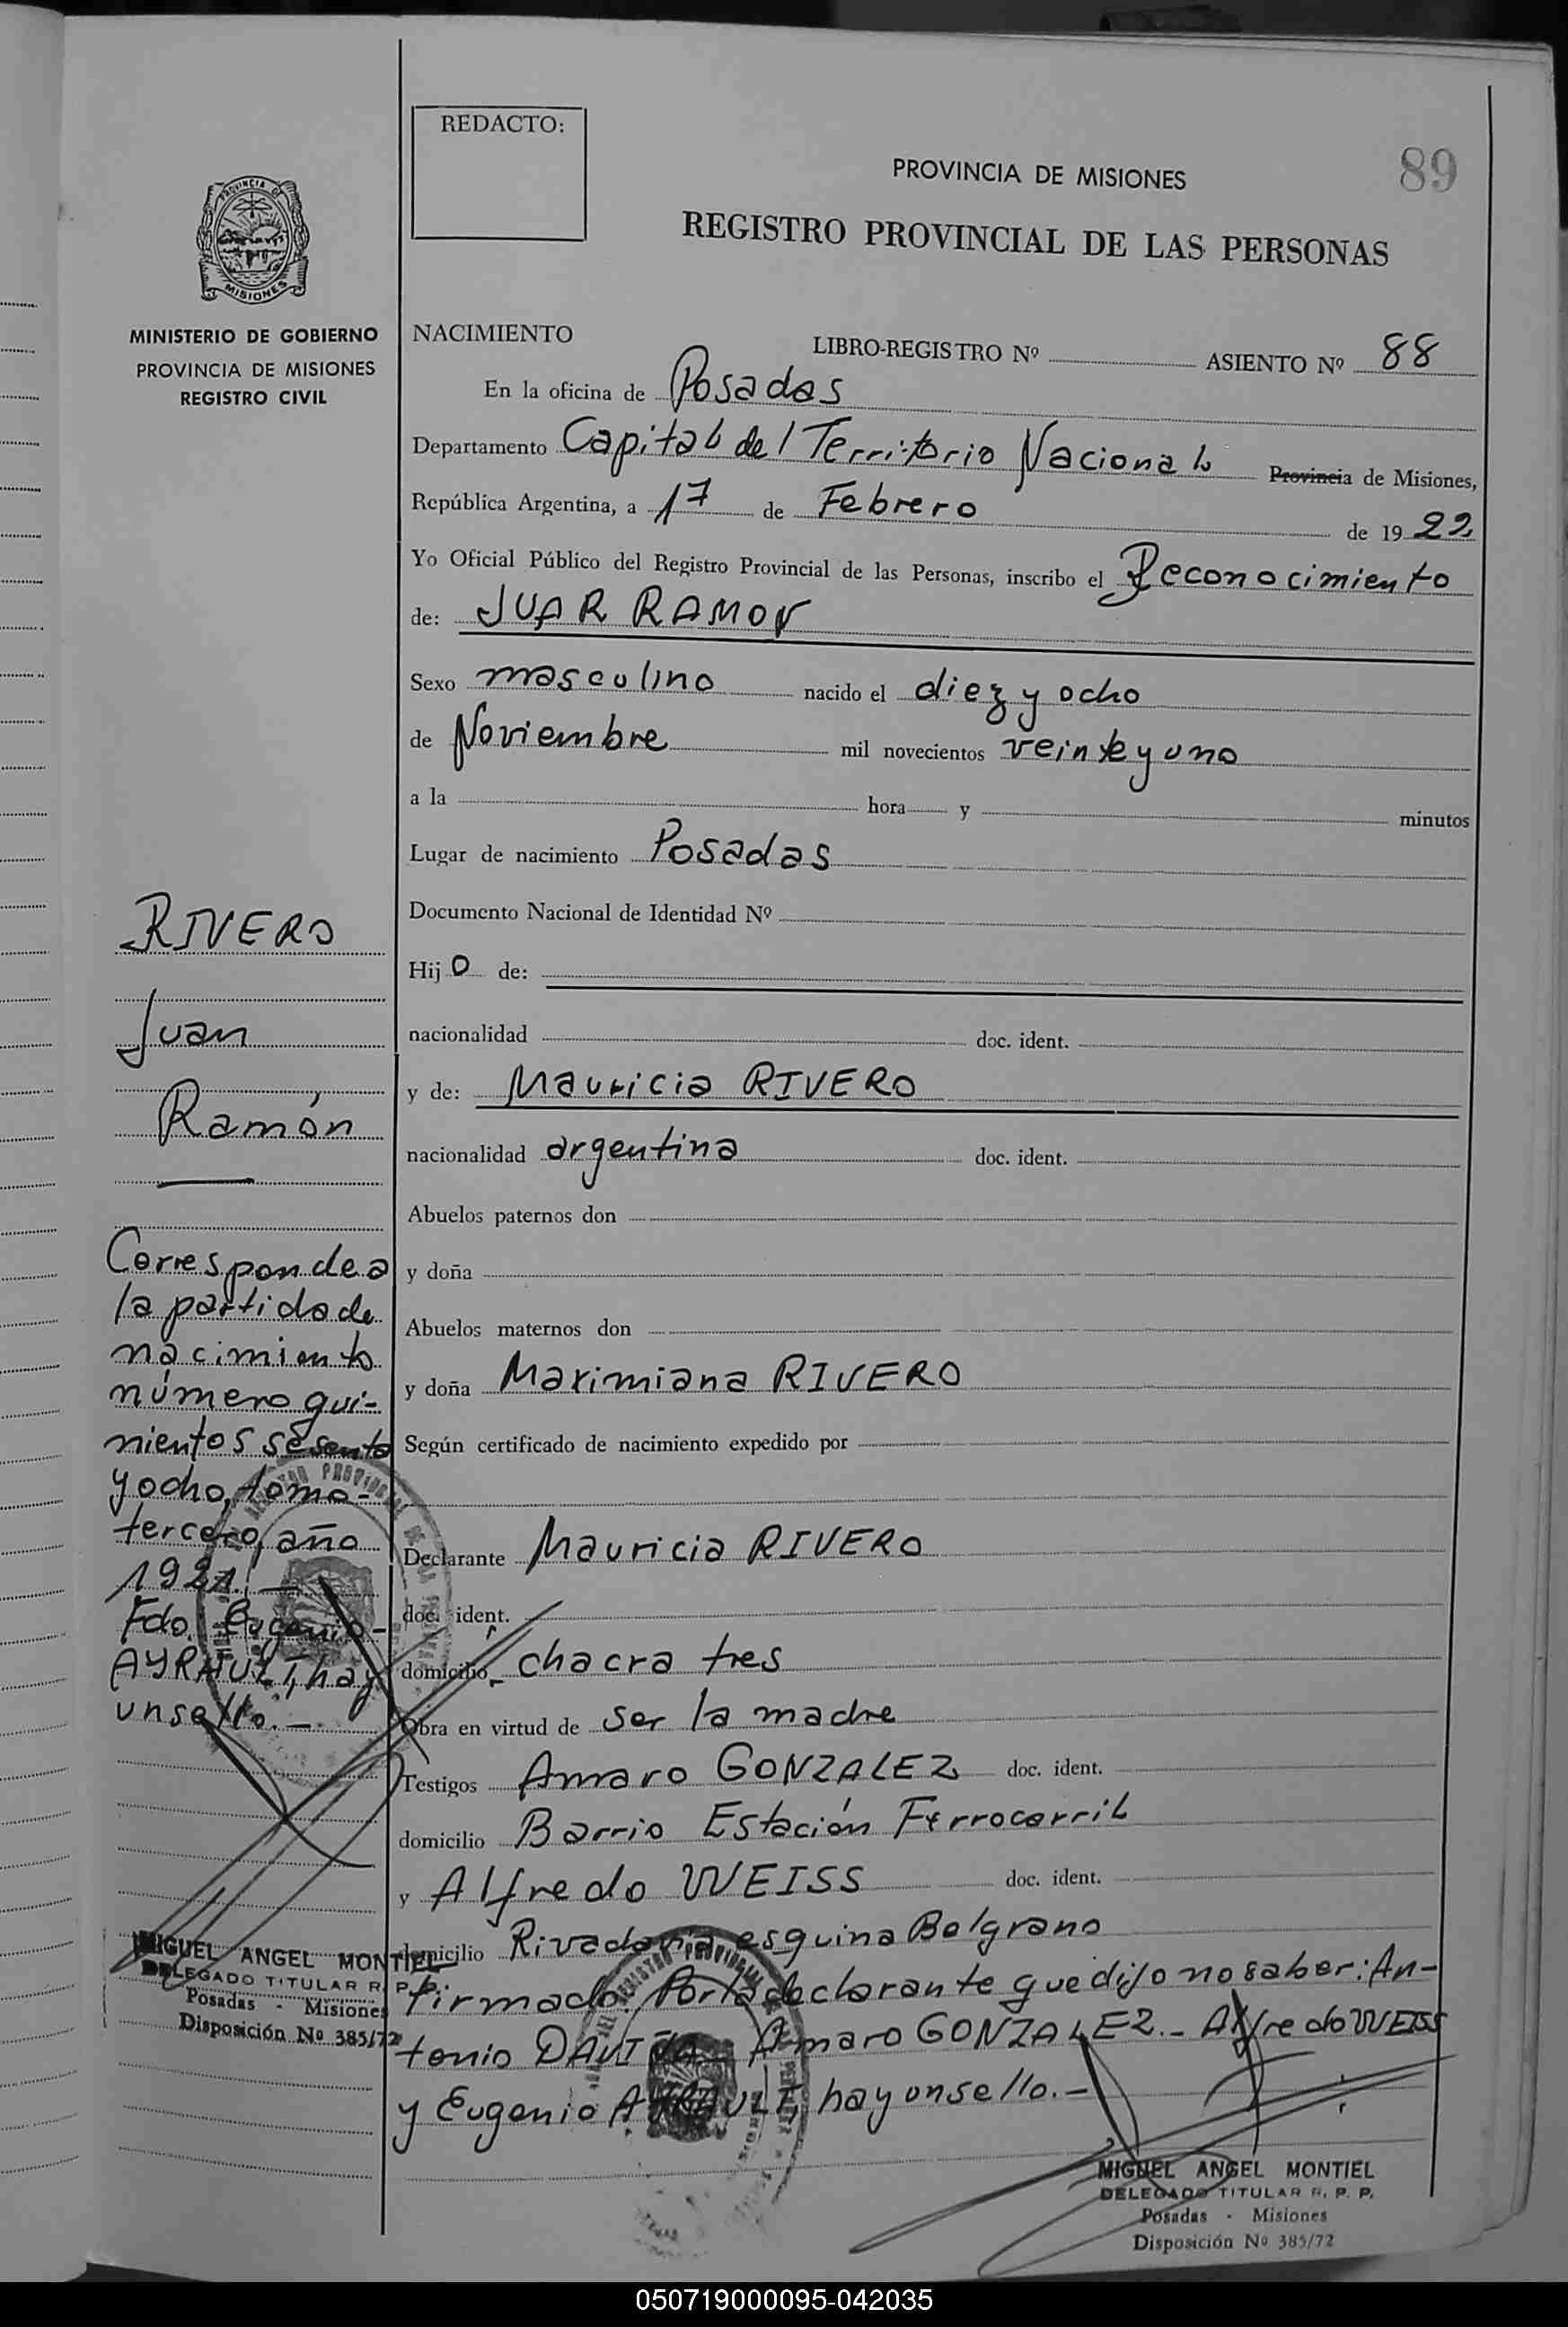 REDACTO:
PROVINCIA DE MISIONES
89
REGISTRO PROVINCIAL DE LAS PERSONAS
PROVINCIA DE
MISIONES
MINISTERIO DE GOBIERNO
PROVINCIA DE MISIONES
REGISTRO CIVIL
NACIMIENTO
LIBRO-REGISTRO Nº ASIENTO Nº 88
En la oficina de Posadas
Departamento Capital del Territorio Nacional Provincia de Misiones,
República Argentina, a 17 de Febrero de 1922
Yo Oficial Público del Registro Provincial de las Personas, inscribo el Reconocimiento
de: JUAR RAMON
Sexo masculino nacido el diez y ocho
de Noviembre mil novecientos veinte y uno
a la hora y minutos
Lugar de nacimiento Posadas
Documento Nacional de Identidad Nº
Hijo de:
nacionalidad doc. ident.
y de: Mauricia RIVERO
nacionalidad argentina doc. ident.
Abuelos paternos don
y doña
Abuelos maternos don
y doña Maximiana RIVERO
Según certificado de nacimiento expedido por
Declarante Mauricia RIVERO
doc. ident.
domicilio chacra tres
Obra en virtud de ser la madre
Testigos Amaro GONZALEZ doc. ident.
domicilio Barrio Estación Ferrocarril
y Alfredo WEISS doc. ident.
domicilio Rivadavia esquina Belgrano
Firmado: Por la declarante que dijo no saber: An-
tonio Amaro GONZALEZ.- Alfredo WEISS
y Eugenio AYRAULT, hay un sello.-
MIGUEL ANGEL MONTIEL
DELEGADO TITULAR R. P. P.
Posadas - Misiones
Disposición Nº 385/72
RIVERO
Juan
Ramón
Corresponde a
la partida de
nacimiento
número qui-
nientos sesenta
y ocho, tomo
tercero, año
1921.-
Fdo: Eugenio
AYRAULT, hay
un sello.-
MIGUEL ANGEL MONTIEL
DELEGADO TITULAR R. P. P.
Posadas - Misiones
Disposición Nº 385/72
050719000095-042035